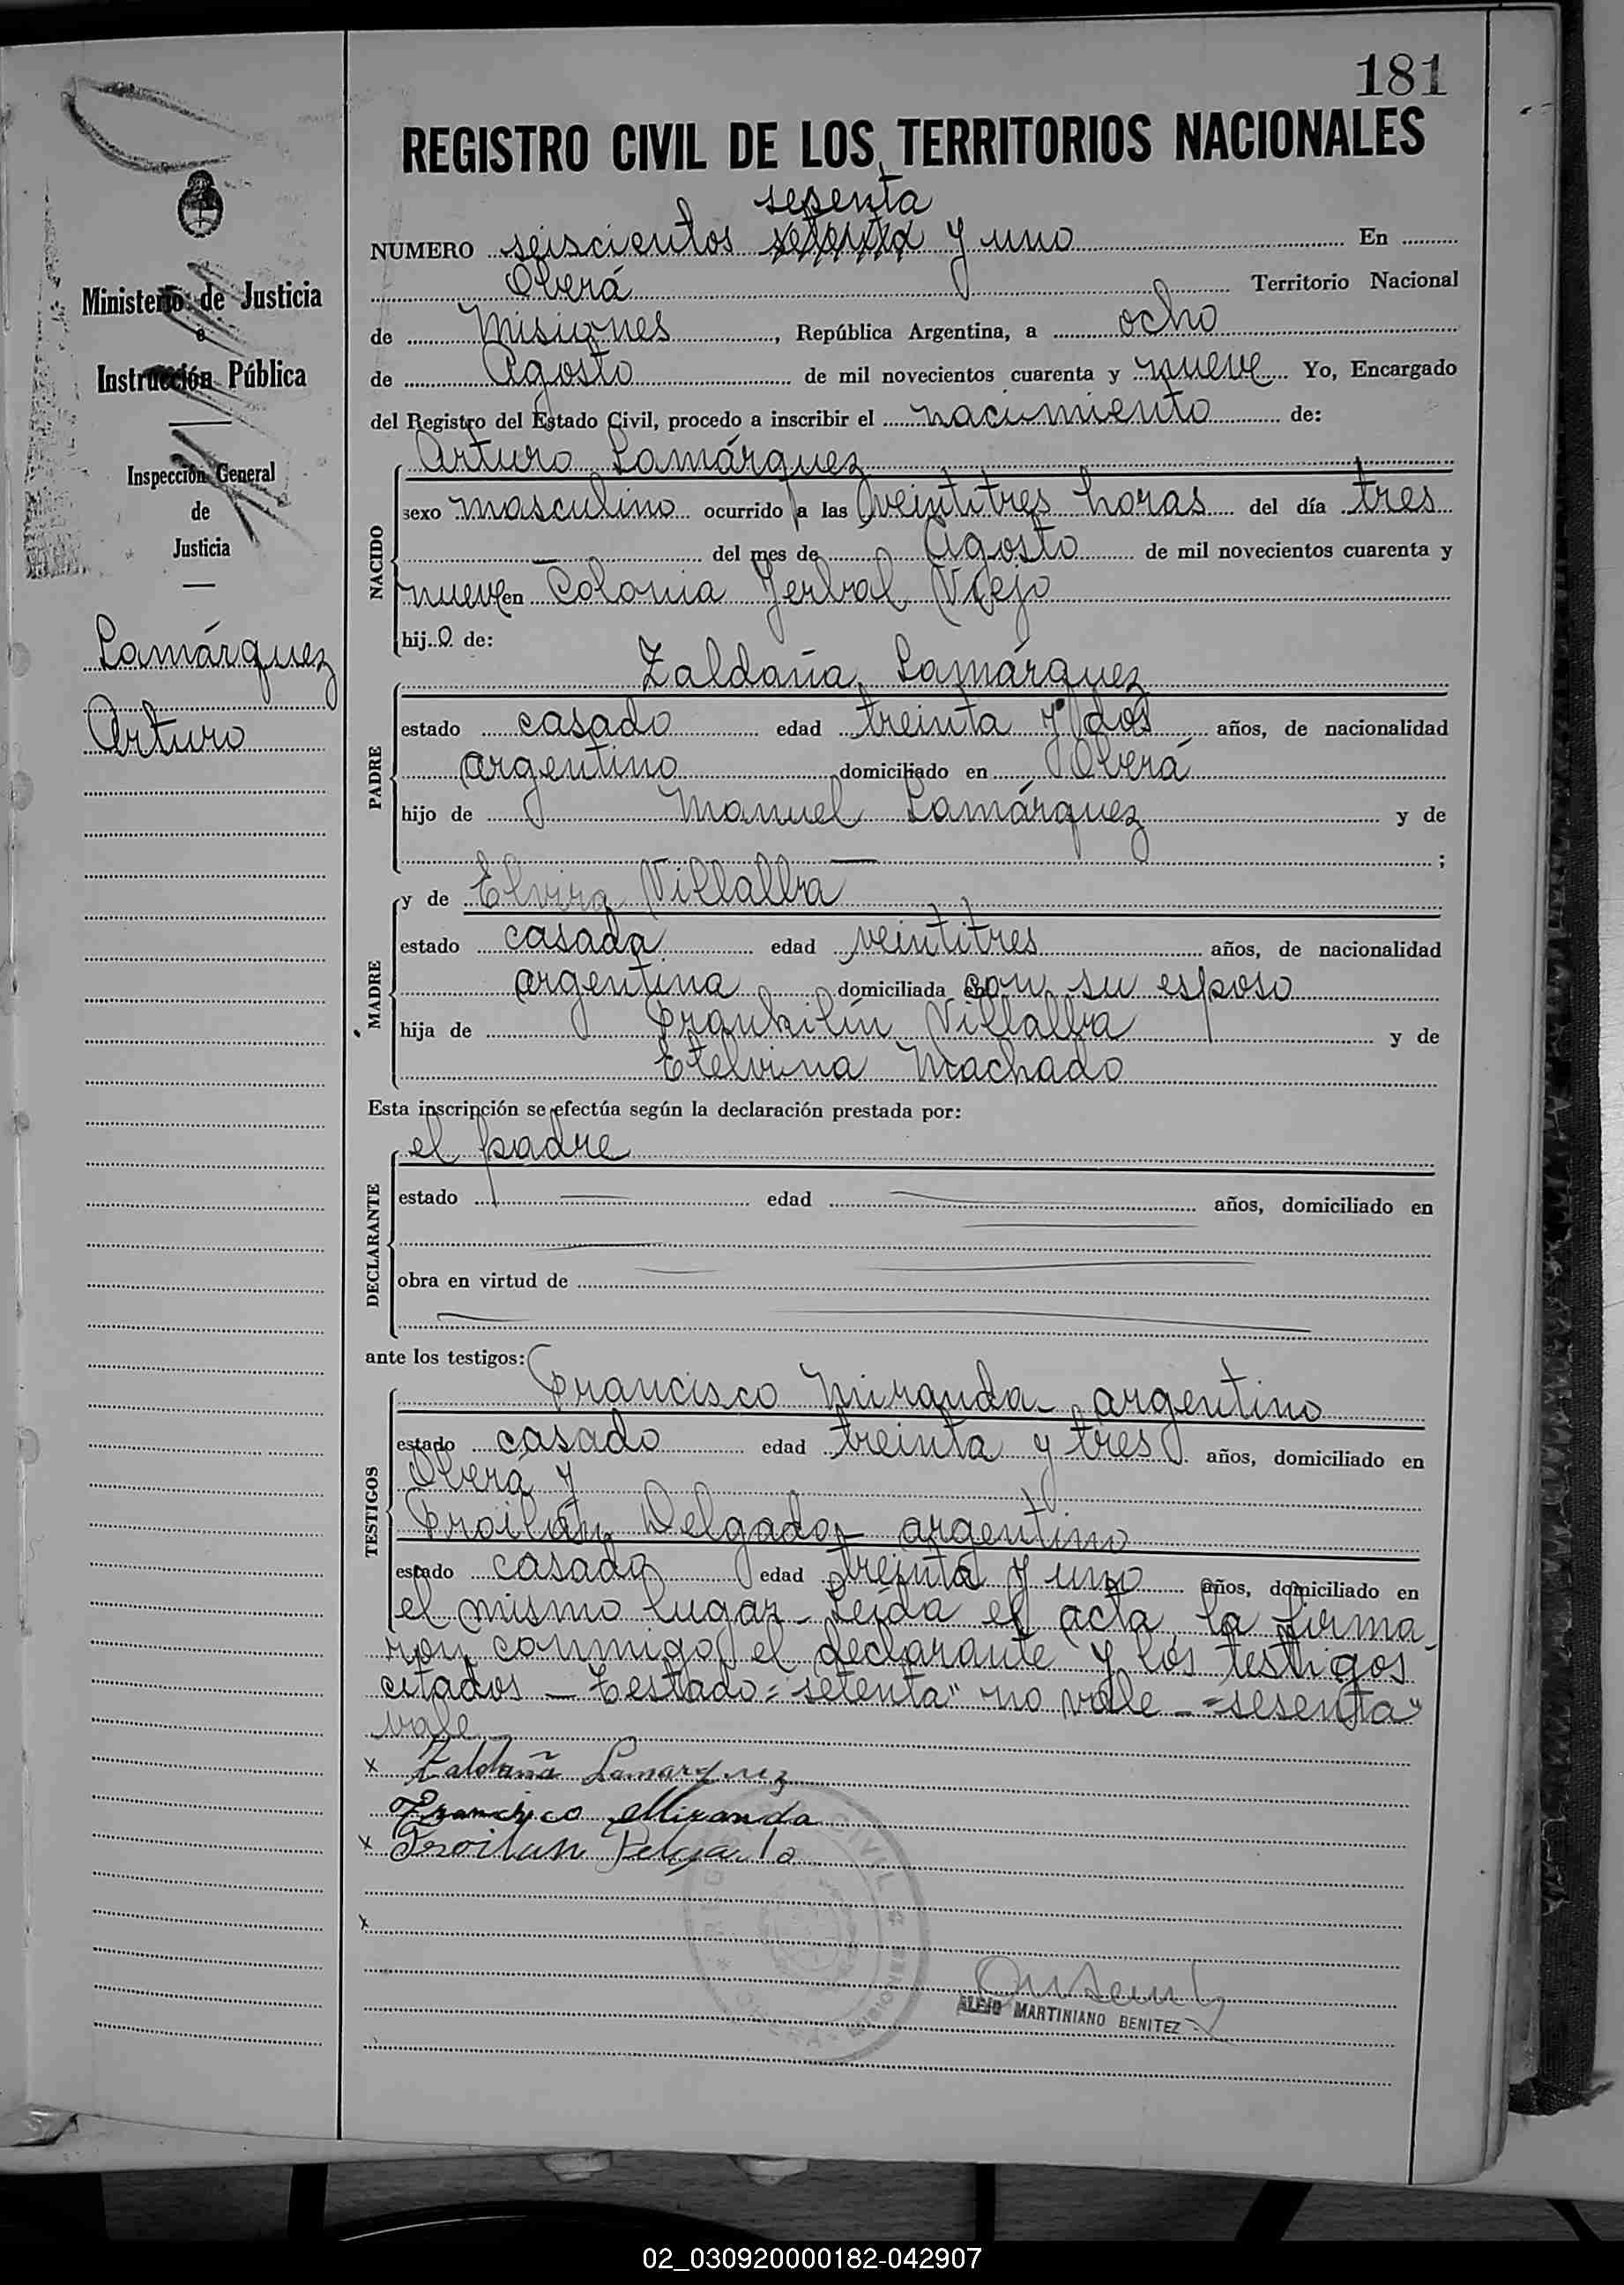 181
REGISTRO CIVIL DE LOS TERRITORIOS NACIONALES
Ministerio de Justicia
e
Instrucción Pública
Inspección General
de
Justicia
Lamárquez
Arturo
sesenta
NUMERO seiscientos setenta y uno En
Oberá Territorio Nacional
de Misiones, República Argentina, a ocho
de Agosto de mil novecientos cuarenta y nueve Yo, Encargado
del Registro del Estado Civil, procedo a inscribir el nacimiento de:
NACIDO
Arturo Lamárquez
sexo masculino ocurrido a las veintitres horas del día tres
del mes de Agosto de mil novecientos cuarenta y
nueve en Colonia Yerbal Viejo
hijo de:
PADRE
Zaldaña Lamárquez
estado casado edad treinta y dos años, de nacionalidad
argentino domiciliado en Oberá
hijo de Manuel Lamárquez y de
— ;
MADRE
y de Elvira Villalba
estado casada edad veintitres años, de nacionalidad
argentina domiciliada con su esposo
hija de Frankilín Villalba y de
Etelvina Machado
Esta inscripción se efectúa según la declaración prestada por:
DECLARANTE
el padre
estado edad años, domiciliado en
obra en virtud de
ante los testigos:
TESTIGOS
Francisco Miranda - argentino
estado casado edad treinta y tres años, domiciliado en
Oberá y
Froilán Delgado - argentino
estado casado edad treinta y uno años, domiciliado en
el mismo lugar - Leída el acta la firma-
ron conmigo el declarante y los testigos
citados - Testado = "setenta" no vale - = sesenta"
vale
x Zaldaña Lamarquez
Francisco Miranda
x Froilan Delgado
x
REGISTRO CIVIL
OBERA - MISIONES
ALEJO MARTINIANO BENITEZ
02_030920000182-042907